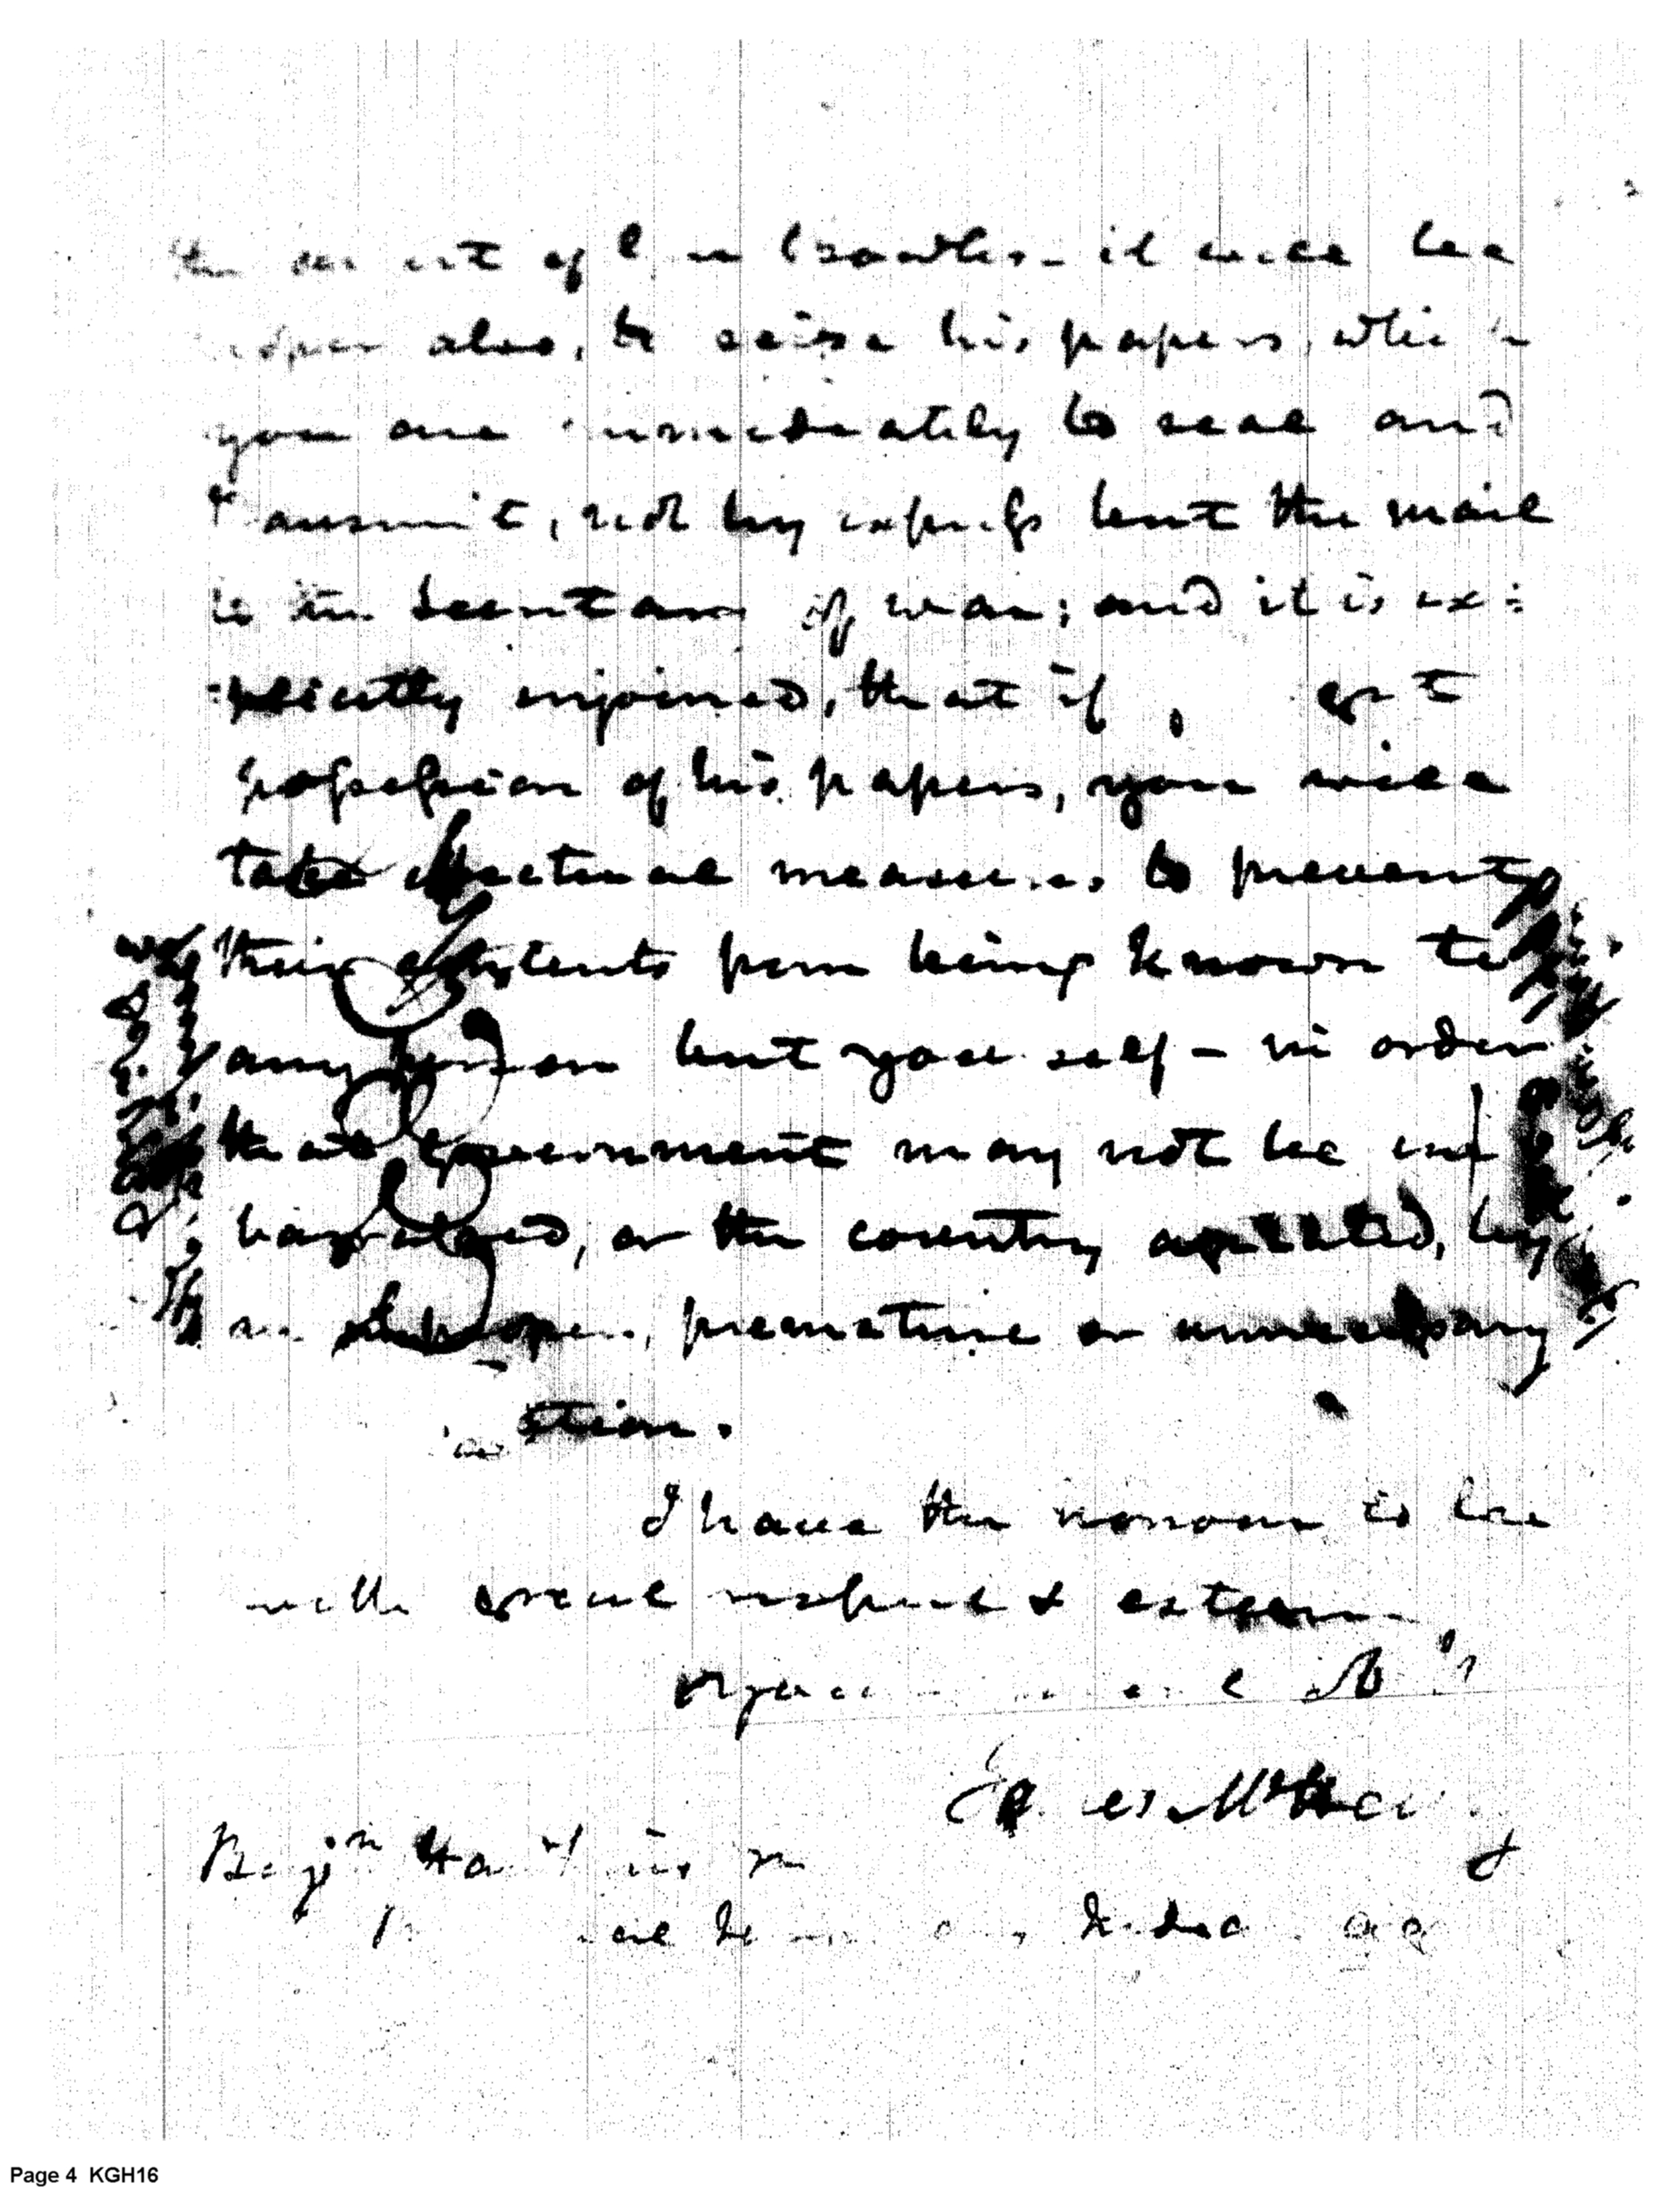 of Bowles - it will be
also, to seize his papers, which
you are immediately to seal and
transmit, not by express but the mail
to the Secretary of war; and it is ex=
=plicitly enjoined, that if get
possession of his papers, you will
take effectual measures to prevent
their contents from being known to
any person but yourself - in order
that government may not be em
barrassed, or the country agitated, by
an improper, premature or unnecessary
I have the honour to be
with great respect & esteem
James McHenry
Benjn Hawkins
Page 4 KGH16